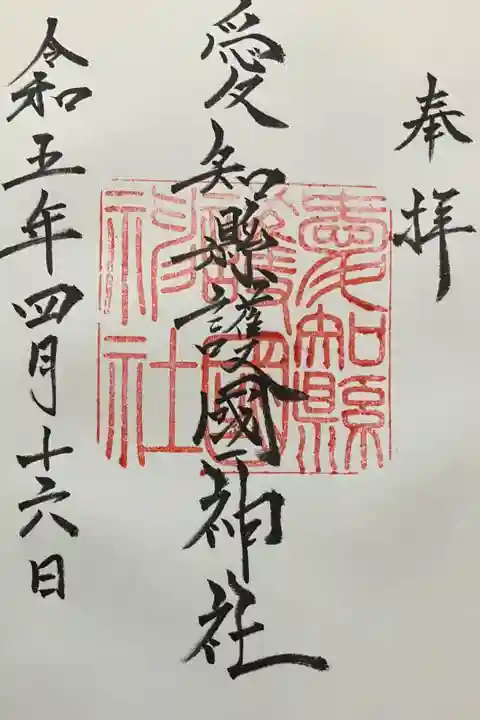 奉拝
愛知縣護國神社
愛知縣
護國
神社
令和五年四月十六日